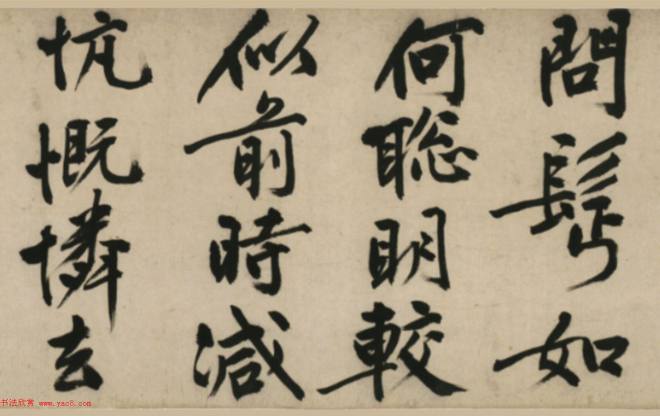 問髯如
何聡明較
似前時減
忼慨憐去
书法欣赏 www.yac8.com